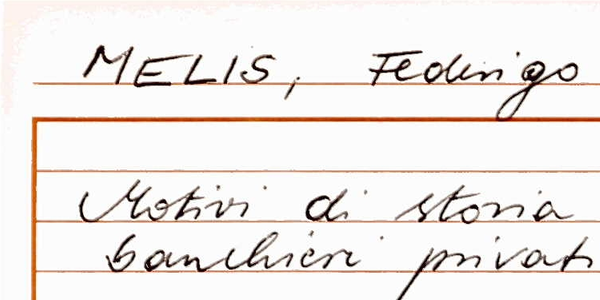 MELIS, Federigo
Motivi di storia
banchieri privati